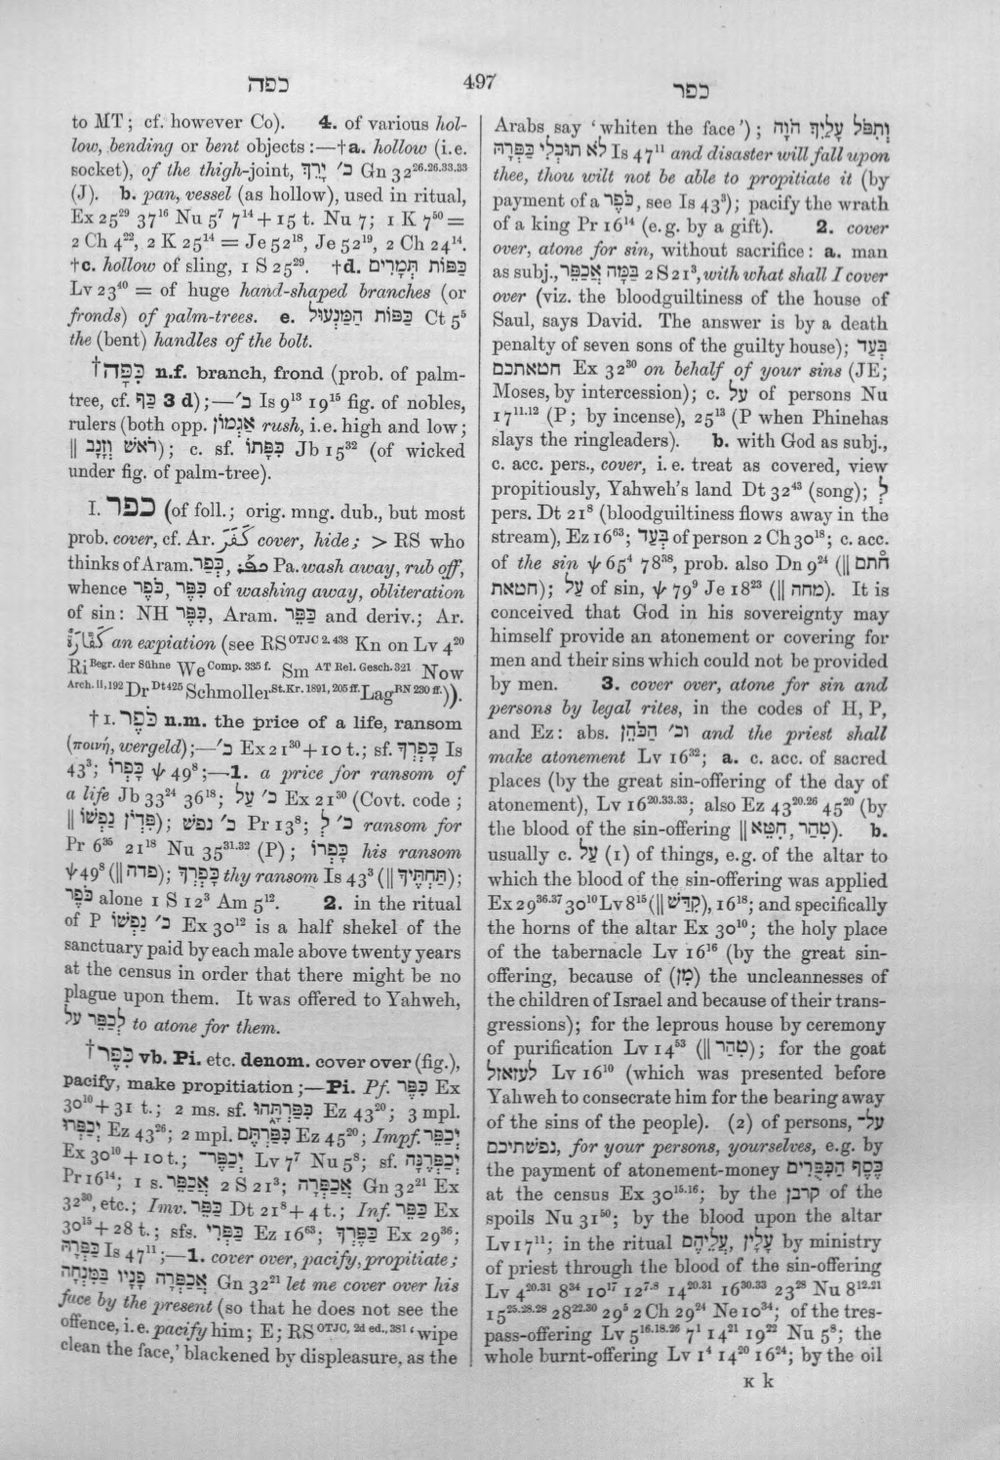 כפה
497
כפר
to MT; cf. however Co). 4. of various hol-
low, bending or bent objects:—†a. hollow (i.e.
socket), of the thigh-joint, כ׳ יָרֵךְ Gn 32²⁶·²⁶·³³·³³
(J). b. pan, vessel (as hollow), used in ritual,
Ex 25²⁹ 37¹⁶ Nu 5⁷ 7¹⁴ + 15 t. Nu 7; 1 K 7⁵⁰ =
2 Ch 4²², 2 K 25¹⁴ = Je 52¹⁸, Je 52¹⁹, 2 Ch 24¹⁴.
†c. hollow of sling, 1 S 25²⁹. †d. כַּפּוֹת תְּמָרִים
Lv 23⁴⁰ = of huge hand-shaped branches (or
fronds) of palm-trees. e. כַּפּוֹת הַמַּנְעוּל Ct 5⁵
the (bent) handles of the bolt.
†כִּפָּה n.f. branch, frond (prob. of palm-
tree, cf. כַּף 3 d);—כ׳ Is 9¹³ 19¹⁵ fig. of nobles,
rulers (both opp. אַגְמוֹן rush, i.e. high and low;
‖ רֹאשׁ וְזָנָב); c. sf. כִּפָּתוֹ Jb 15³² (of wicked
under fig. of palm-tree).
I. כפר (of foll.; orig. mng. dub., but most
prob. cover, cf. Ar. كَفَرَ cover, hide; > RS who
thinks of Aram. כְּפַר, ܟܦܪ Pa. wash away, rub off,
whence כִּפֶּר, כֹּפֶר of washing away, obliteration
of sin: NH כִּפֵּר, Aram. כַּפֵּר and deriv.; Ar.
كَفَّارَة an expiation (see RS OTJC 2. 438 Kn on Lv 4²⁰
Ri Begr. der Sühne We Comp. 335 f. Sm AT Rel. Gesch. 321 Now
Arch. II, 192 Dr Dt 425 Schmoller St. Kr. 1891, 205 ff. Lag BN 230 ff.)).
†I. כֹּפֶר n.m. the price of a life, ransom
(ποινή, wergeld);—כ׳ Ex 21³⁰ + 10 t.; sf. כָּפְרְךָ Is
43³; כָּפְרוֹ ψ 49⁸;—1. a price for ransom of
a life Jb 33²⁴ 36¹⁸; כ׳ עַל Ex 21³⁰ (Covt. code;
‖ פִּדְיֹן נַפְשׁוֹ); כ׳ נפש Pr 13⁸; כ׳ לְ ransom for
Pr 6³⁵ 21¹⁸ Nu 35³¹·³² (P); כָּפְרוֹ his ransom
ψ 49⁸ (‖ פדה); כָּפְרְךָ thy ransom Is 43³ (‖ תַּחְתֶּיךָ);
כֹּפֶר alone 1 S 12³ Am 5¹². 2. in the ritual
of P כ׳ נַפְשׁוֹ Ex 30¹² is a half shekel of the
sanctuary paid by each male above twenty years
at the census in order that there might be no
plague upon them. It was offered to Yahweh,
לְכַפֵּר עַל to atone for them.
†כִּפֶּר vb. Pi. etc. denom. cover over (fig.),
pacify, make propitiation;—Pi. Pf. כִּפֶּר Ex
30¹⁰ + 31 t.; 2 ms. sf. כִּפַּרְתָּהוּ Ez 43²⁰; 3 mpl.
יְכַפְּרוּ Ez 43²⁶; 2 mpl. כִּפַּרְתֶּם Ez 45²⁰; Impf. יְכַפֵּר
Ex 30¹⁰ + 10 t.; יְכַפֶּר־ Lv 7⁷ Nu 5⁸; sf. יְכַפְּרֶנָּה
Pr 16¹⁴; 1 s. אֲכַפֵּר 2 S 21³; אֲכַפְּרָה Gn 32²¹ Ex
32³⁰, etc.; Imv. כַּפֵּר Dt 21⁸ + 4 t.; Inf. כַּפֵּר Ex
30¹⁵ + 28 t.; sfs. כַּפְּרִי Ez 16⁶³; כַּפֶּרְךָ Ex 29³⁶;
כַּפְּרָהּ Is 47¹¹;—1. cover over, pacify, propitiate;
אֲכַפְּרָה פָנָיו בַּמִּנְחָה Gn 32²¹ let me cover over his
face by the present (so that he does not see the
offence, i.e. pacify him; E; RS OTJC, 2d ed., 381 ‘wipe
clean the face,’ blackened by displeasure, as the
Arabs say ‘whiten the face’); וְתִפֹּל עָלַיִךְ הֹוָה
לֹא תוּכְלִי כַּפְּרָהּ Is 47¹¹ and disaster will fall upon
thee, thou wilt not be able to propitiate it (by
payment of a כֹּפֶר, see Is 43³); pacify the wrath
of a king Pr 16¹⁴ (e.g. by a gift). 2. cover
over, atone for sin, without sacrifice: a. man
as subj., בַּמָּה אֲכַפֵּר 2 S 21³, with what shall I cover
over (viz. the bloodguiltiness of the house of
Saul, says David. The answer is by a death
penalty of seven sons of the guilty house); בְּעַד
חטאתכם Ex 32³⁰ on behalf of your sins (JE;
Moses, by intercession); c. עַל of persons Nu
17¹¹·¹² (P; by incense), 25¹³ (P when Phinehas
slays the ringleaders). b. with God as subj.,
c. acc. pers., cover, i.e. treat as covered, view
propitiously, Yahweh’s land Dt 32⁴³ (song); לְ
pers. Dt 21⁸ (bloodguiltiness flows away in the
stream), Ez 16⁶³; בְּעַד of person 2 Ch 30¹⁸; c. acc.
of the sin ψ 65⁴ 78³⁸, prob. also Dn 9²⁴ (‖ חתם
חטאת); עַל of sin, ψ 79⁹ Je 18²³ (‖ מחה). It is
conceived that God in his sovereignty may
himself provide an atonement or covering for
men and their sins which could not be provided
by men. 3. cover over, atone for sin and
persons by legal rites, in the codes of H, P,
and Ez: abs. וכ׳ הַכֹּהֵן and the priest shall
make atonement Lv 16³²; a. c. acc. of sacred
places (by the great sin-offering of the day of
atonement), Lv 16²⁰·³³·³³; also Ez 43²⁰·²⁶ 45²⁰ (by
the blood of the sin-offering ‖ טִהַר, חִטֵּא). b.
usually c. עַל (1) of things, e.g. of the altar to
which the blood of the sin-offering was applied
Ex 29³⁶·³⁷ 30¹⁰ Lv 8¹⁵ (‖ קִדֵּשׁ), 16¹⁸; and specifically
the horns of the altar Ex 30¹⁰; the holy place
of the tabernacle Lv 16¹⁶ (by the great sin-
offering, because of (מִן) the uncleannesses of
the children of Israel and because of their trans-
gressions); for the leprous house by ceremony
of purification Lv 14⁵³ (‖ טִהַר); for the goat
לעזאזל Lv 16¹⁰ (which was presented before
Yahweh to consecrate him for the bearing away
of the sins of the people). (2) of persons, עַל־
נפשתיכם, for your persons, yourselves, e.g. by
the payment of atonement-money כֶּסֶף הַכִּפֻּרִים
at the census Ex 30¹⁵·¹⁶; by the קרבן of the
spoils Nu 31⁵⁰; by the blood upon the altar
Lv 17¹¹; in the ritual עָלָיו, עֲלֵיהֶם by ministry
of priest through the blood of the sin-offering
Lv 4²⁰·³¹ 8³⁴ 10¹⁷ 12⁷·⁸ 14²⁰·³¹ 16³⁰·³³ 23²⁸ Nu 8¹²·²¹
15²⁵·²⁸·²⁸ 28²²·³⁰ 29⁵ 2 Ch 29²⁴ Ne 10³⁴; of the tres-
pass-offering Lv 5¹⁶·¹⁸·²⁶ 7¹ 14²¹ 19²² Nu 5⁸; the
whole burnt-offering Lv 1⁴ 14²⁰ 16²⁴; by the oil
K k